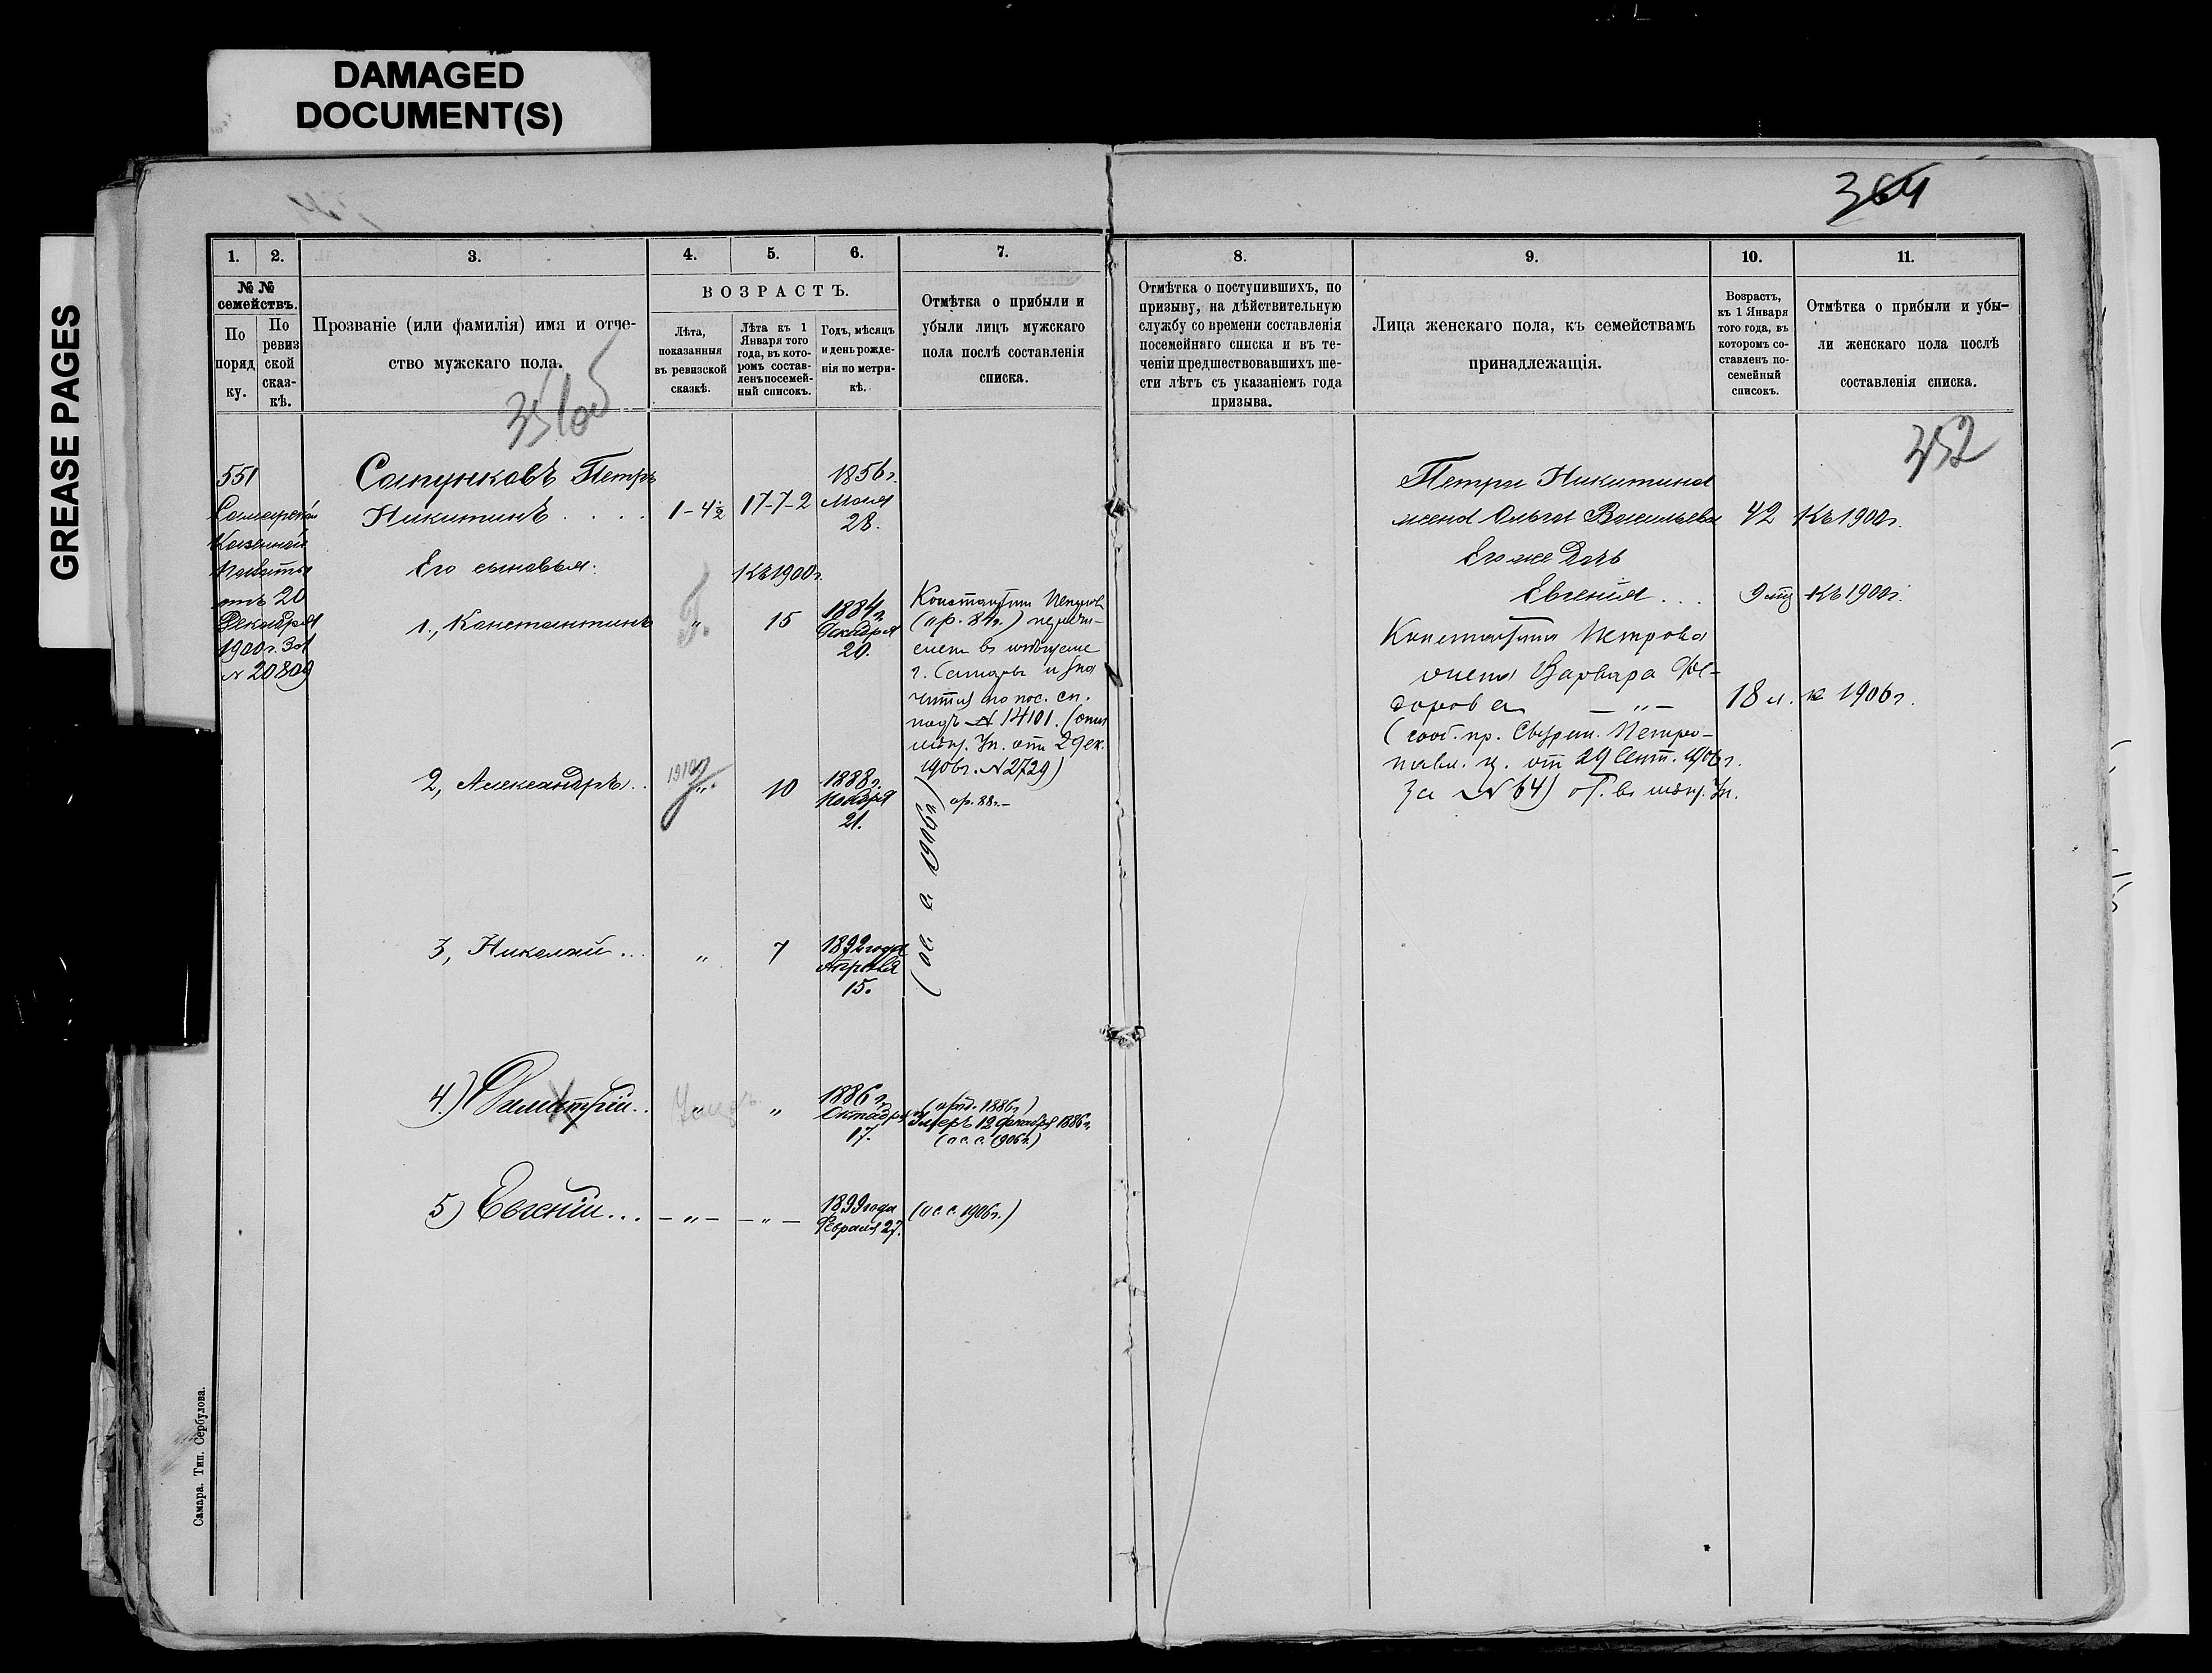 DAMAGED
DOCUMENT(S)
GREASE PAGES
364
1.
2.
3.
4.
5.
6.
7.
№ №
семействъ.
По
поряд
ку.
По
ревиз
ской
сказ-
кѣ.
Прозваніе (или фамилія) имя и отче-
ство мужскаго пола.
ВОЗРАСТЪ.
Лѣта,
показанныя
въ ревизской
сказкѣ.
Лѣта къ 1
Января того
года, въ кото-
ромъ состав-
ленъ посемей-
ный списокъ.
Годъ, мѣсяцъ
и день рожде-
нія по метри-
кѣ.
Отмѣтка о прибыли и
убыли лицъ мужскаго
пола послѣ составленія
списка.
551
Самарской
Казенной
Палаты
отъ 20
Декабря
1900 г. За
№ 20809
Сапунковъ Петръ
Никитинъ
1-4½
17-7-2
1856 г.
Мая
28.
Его сыновья:
Къ 1900 г.
1., Константинъ
"
15
1884 г.
Декабря
20.
Константинъ Петровъ
(пр. 84 г.) перечи-
сленъ въ мѣщане
г. Самары и зна
чится по пос. сп.
подъ № 14101. (опр.
мѣщ. Уп. отъ 2 дек.
1906 г. № 2729)
2, Александръ..
1910
"
10
1888 г.
Ноября
21.
пр. 88 г.-
(ос. с. 1906 г.)
3, Николай...
"
7
1892 года
Апрѣля
15.
4.) Димитрій..
"
"
1886 г.
Октября
17.
(прз. 1886 г.)
Умеръ 12 Декабря 1886 г.
(о с. с. 1906 г.)
5) Евгеній...
- " -
- " -
1899 года
Февраля 27.
(о с. с. 1906 г.)
Самара. Тип. Сербулова.
8.
9.
10.
11.
Отмѣтка о поступившихъ, по
призыву, на дѣйствительную
службу со времени составленія
посемейнаго списка и въ те-
ченіи предшествовавшихъ ше-
сти лѣтъ съ указаніемъ года
призыва.
Лица женскаго пола, къ семействамъ
принадлежащія.
Возрастъ,
къ 1 Января
того года, въ
которомъ со-
ставленъ по-
семейный
списокъ.
Отмѣтка о прибыли и убы-
ли женскаго пола послѣ
составленія списка.
352
Петра Никитина
жена Ольга Васильева
42
Къ 1900 г.
Его же дочь
Евгенія...
9
Къ 1900 г.
Константина Петрова
жена Варвара Фе-
дорова - " -
18 л.
к 1906 г.
(сооб. пр. Петро-
павл. ц. от 29 Сент. 1906 г.
За № 64) от. въ мѣщ. Уп.